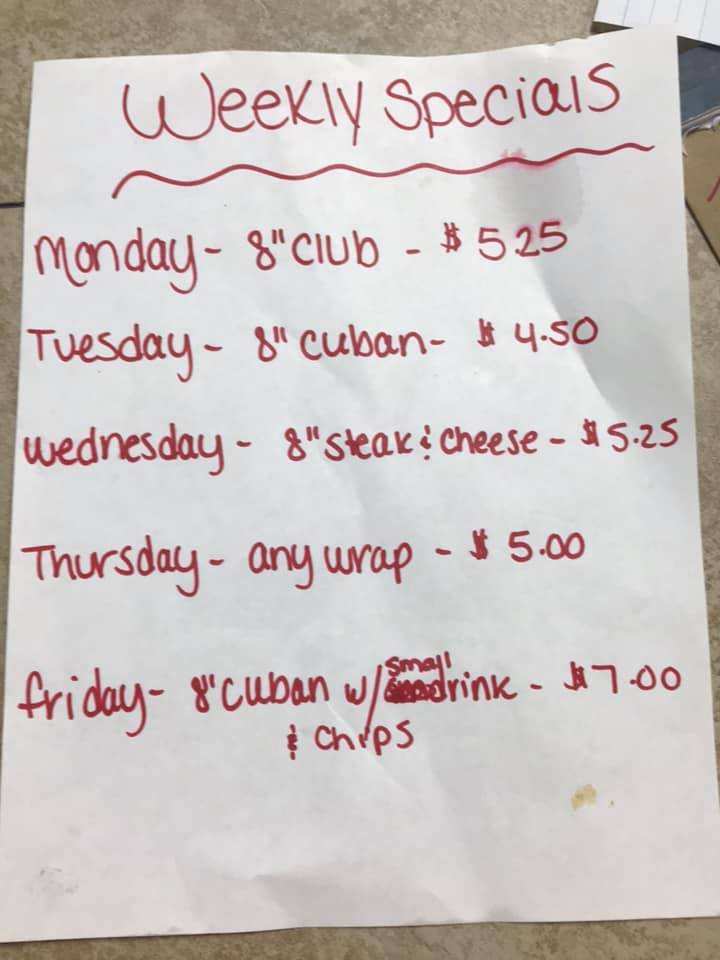 Weekly Specials
Monday - 8" Club - $ 5.25
Tuesday - 8" Cuban - $ 4.50
Wednesday - 8" steak & cheese - $ 5.25
Thursday - any wrap - $ 5.00
friday - 8" Cuban w/ small drink - $ 7.00
& chips